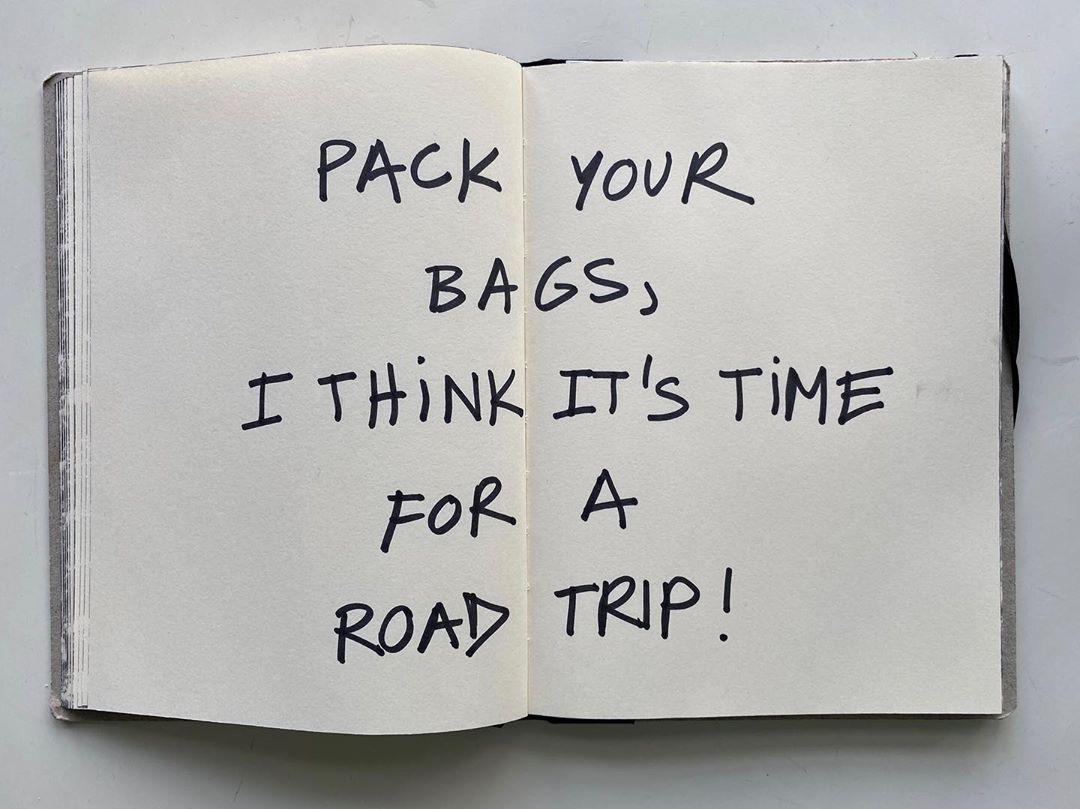 PACK YOUR
BAGS,
I THiNK IT'S TiME
FOR A
ROAD TRIP!